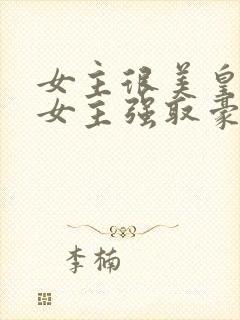 女主很美皇
女主强取豪
李楠